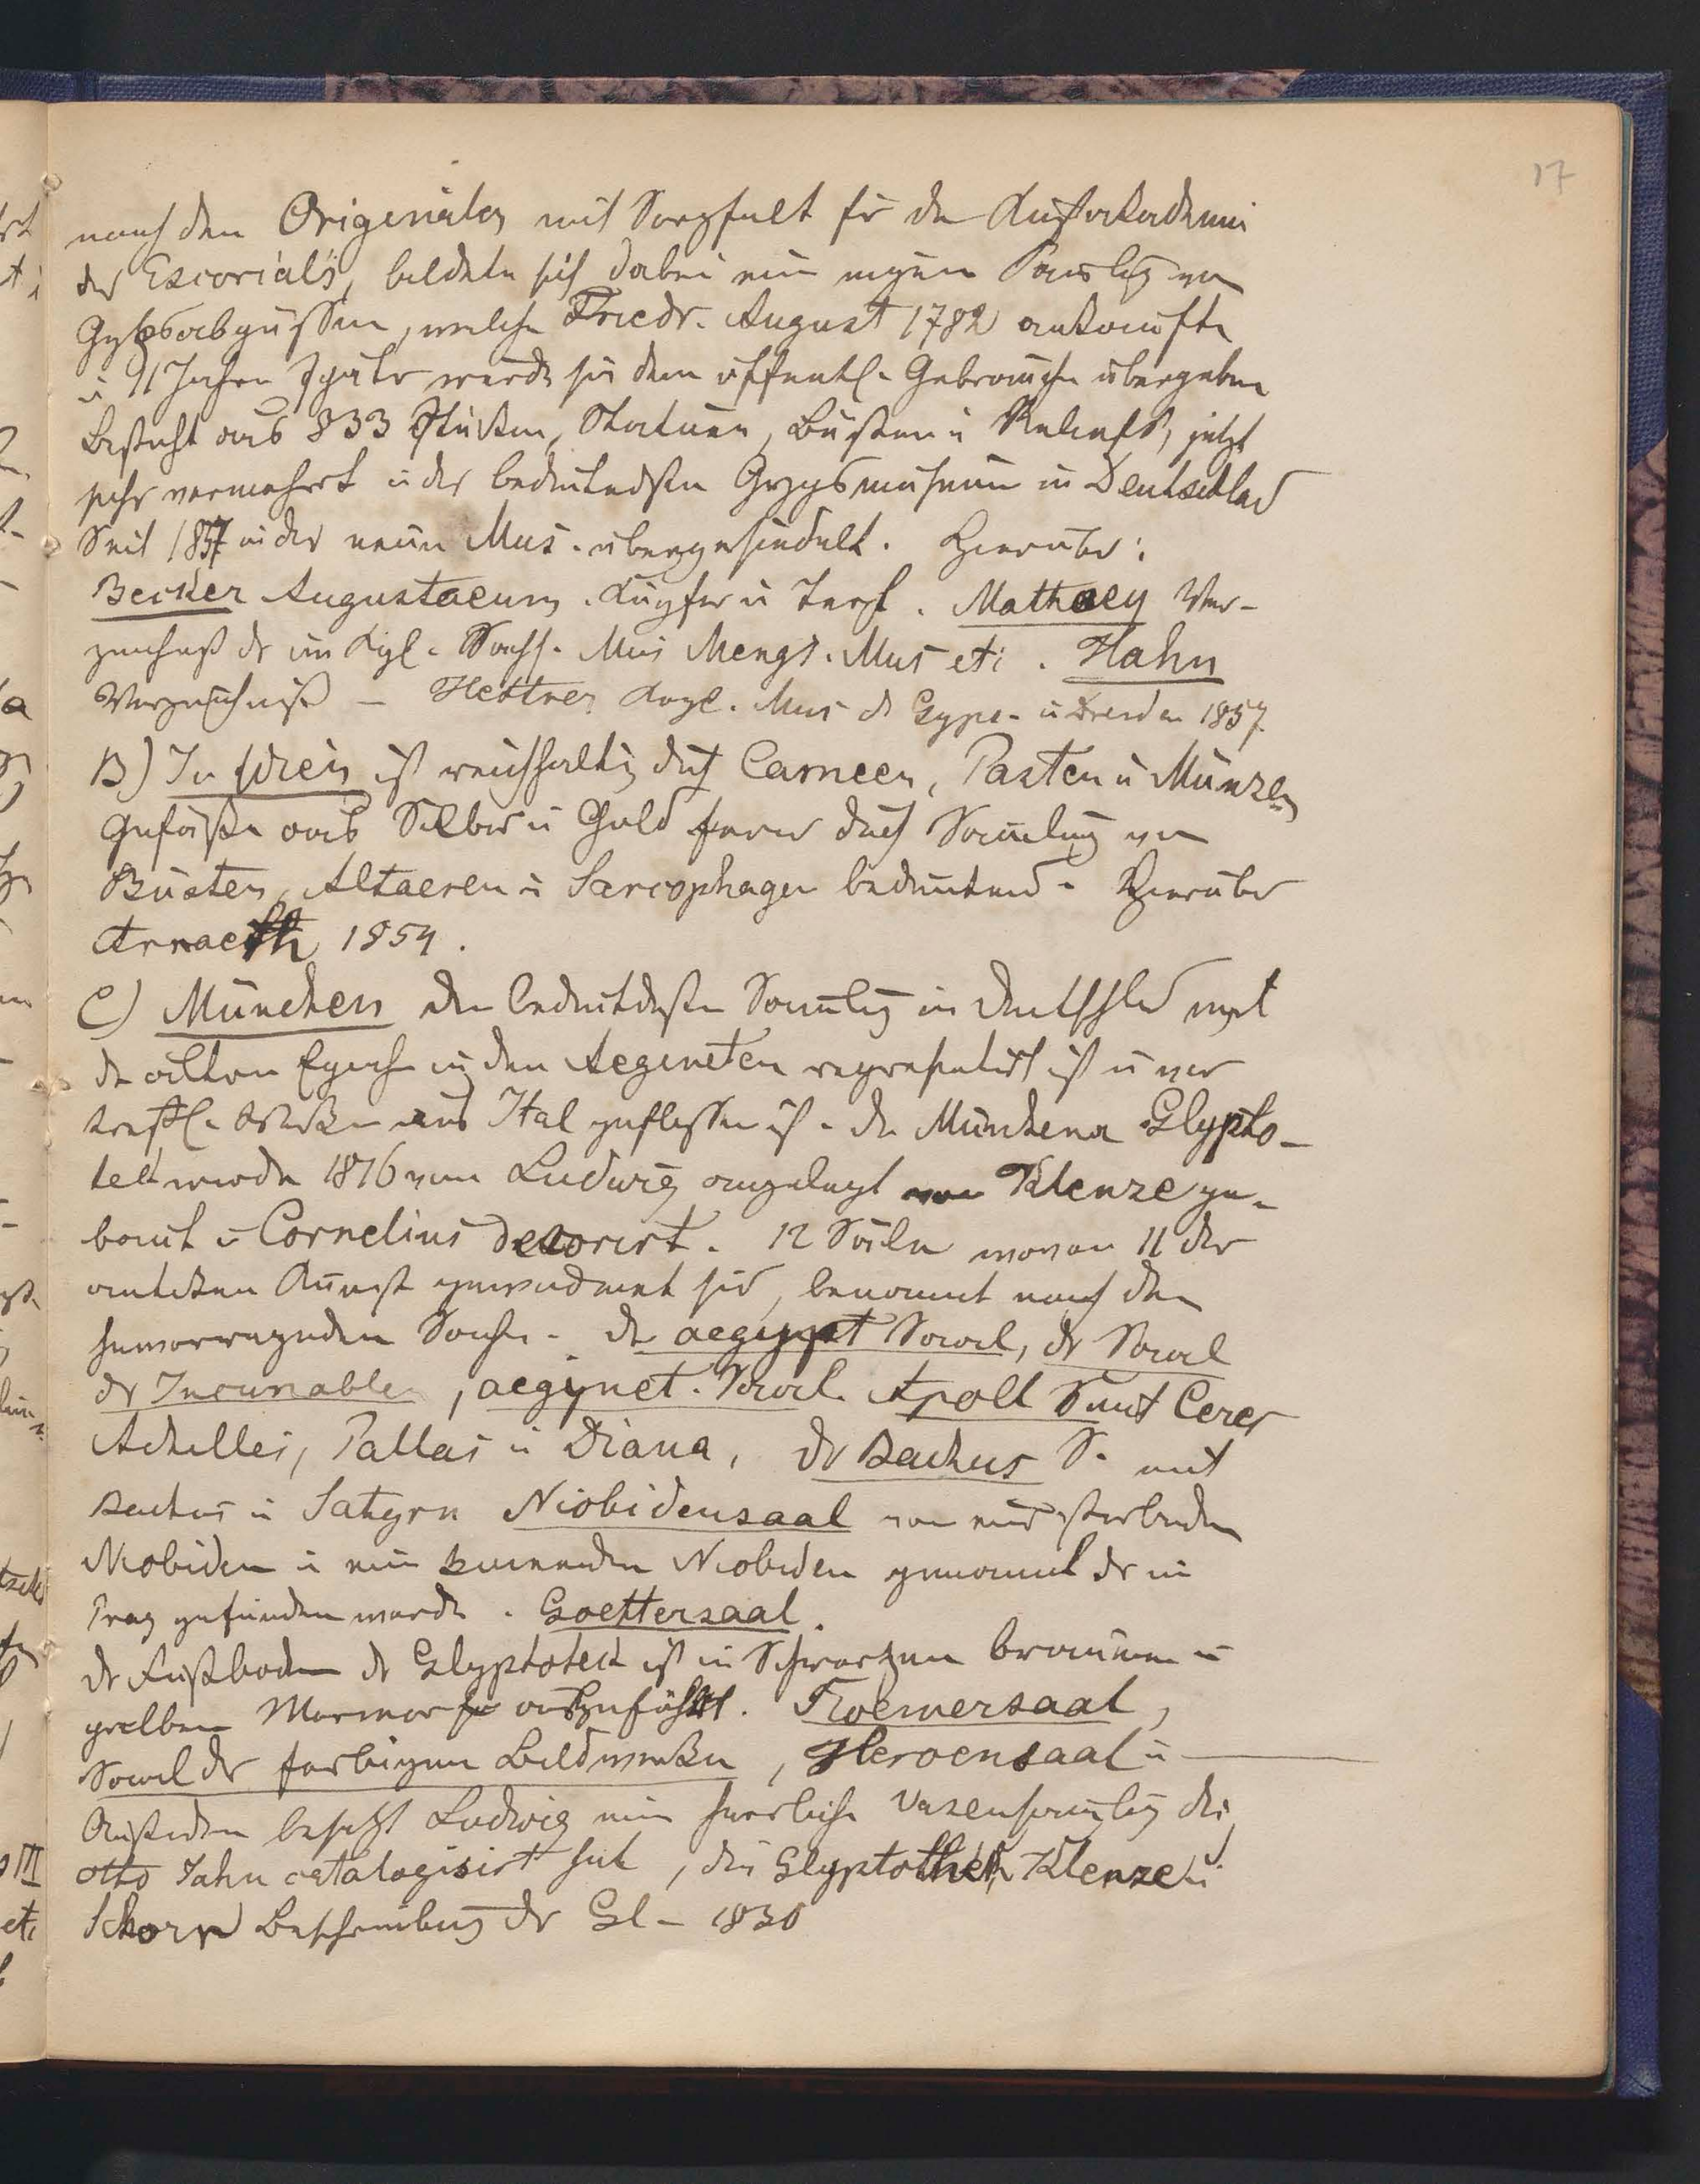 17
nach den Originalen mit Sorgfalt für die Kunstakademie
des Escorials, bildete sich dabei eine eigene Samlg von
Gypsabgüssen, welche Friedr. August 1782 ankaufte
u 11 Jahre später wurde sie dem öffentl. Gebrauche übergeben
Besteht aus 833 Stücken, Statuen, Büsten u Reliefs, jetzt
sehr vermehrt u das bedeutendste Gypsmuseum in Deutschlad
Seit 1857 in das neue Mus. übergesiedelt. Hierüber:
Becker Augusteum. Kupfer u Text. Mathaey Ver-
zeichniß der im Kgl. Sächs. Mus Mengs. Mus etc. Hahn
Verzeichniß – Hettner Kgl. Mus d Gyps- u Dresden 1857.
B) In Wien ist reichhaltig durch Cameen, Pasten u Münzen
Gefäße aus Silber u Gold ferner durch Samlung von
Büsten, Altaeren u Sarcophagen bedeutend. Hierüber
Arnaeth 1854.
C) München die bedeutdste Samlg in Deutschld weil
die ältere Epoche in den Aegineten repraesentirt ist u vor
treffl. Werke aus Ital zugeflossen ist. Die Münchena Glypto-
tek wurde 1816 von Ludwig angelegt von Klenze ge-
baut u Cornelius decorirt. 12 Säle wovon 11 der
antiken Kunst gewidmet sid, benannt nach den
hervorragenden Sachen. der aegypt Saal, der Saal
der Incunablen, aeginet. Saal. Apoll S mit Ceres
Achilles, Pallas u Diana, der Bachus S. mit
Bachus u Satyrn Niobidensaal von eine sterbenden
Niobiden u ein knienden Niobiden genannt der in
Prag gefunden wurde. Goettersaal.
der Fußboden der Glyptotek ist in Schwarzem braunem u
gelbem Marmor ausgeführt. Roemersaal,
Saal der farbigen Bildwerke, Heroensaal u —
Außerdem besitzt Ludwig eine herrliche Vasensamlg die
Otto Jahn catalogisirt hat, die Glyptothek Klenze u
Schorn Beschreibung der Gl – 1830